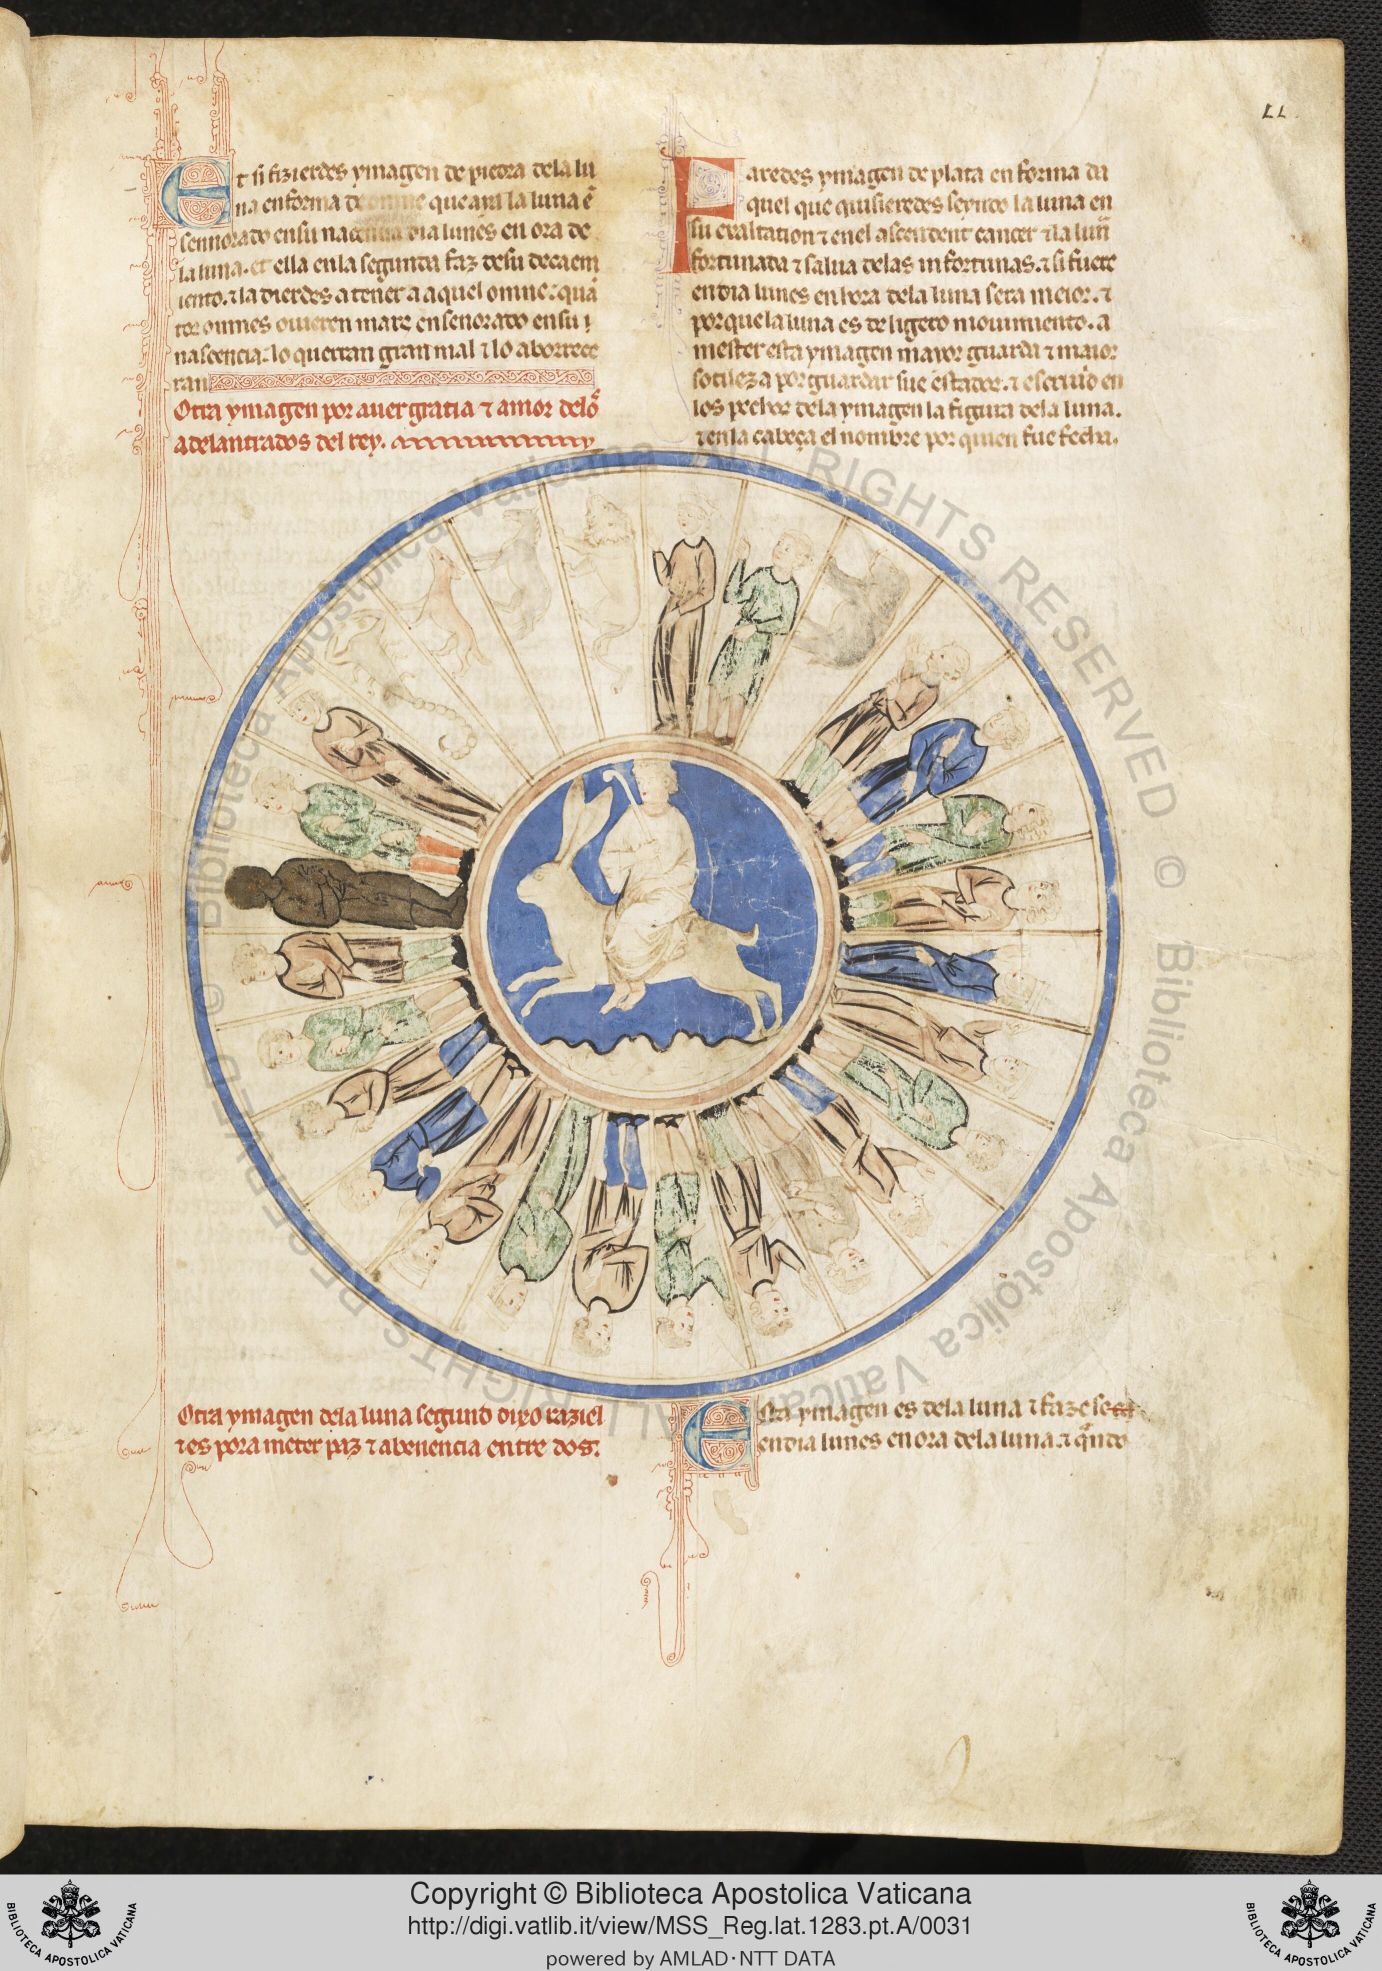 LL
Et si fizierdes ymagen de piedra dela lu
na en forma de omne que aya la luna ẽ
sennorado en su nacencia dia lunes en ora de
la luna. et ella en la segunda faz de su decaem
iento. ⁊ la dierdes a tener a aquel omne: quã
tos omnes ouieren mars ensenorado en su
nascencia: lo querran gran mal ⁊ lo aborrece
ran
Otra ymagen por auer gratia ⁊ amor delos
adelantrados del rey.
Faredes ymagen de plata en forma da
quel que quisieredes seyendo la luna en
su exaltation ⁊ en el ascendent cancer ⁊ la luna
fortunada ⁊ salua delas infortunas. ⁊ si fuere
en dia lunes en hora dela luna sera meior. ⁊
por que la luna es de ligero mouimiento. a
mester esta ymagen mayor guarda ⁊ maior
sotileza por guardar sue estados. ⁊ escriuid en
los pechos dela ymagen la figura dela luna.
⁊ en la cabeça el nombre por quien fue fecha.
Otra ymagen dela luna segund dixo raziel
⁊ es pora meter paz ⁊ abenencia entre dos:
Esta ymagen es dela luna ⁊ faze se
en dia lunes en ora dela luna. ⁊ q̃ndo
© Biblioteca Apostolica Vaticana ALL RIGHTS RESERVED © Biblioteca Apostolica Vaticana ALL RIGHTS RESERVED
BIBLIOTECA APOSTOLICA VATICANA
Copyright © Biblioteca Apostolica Vaticana
http://digi.vatlib.it/view/MSS_Reg.lat.1283.pt.A/0031
powered by AMLAD·NTT DATA
BIBLIOTECA APOSTOLICA VATICANA